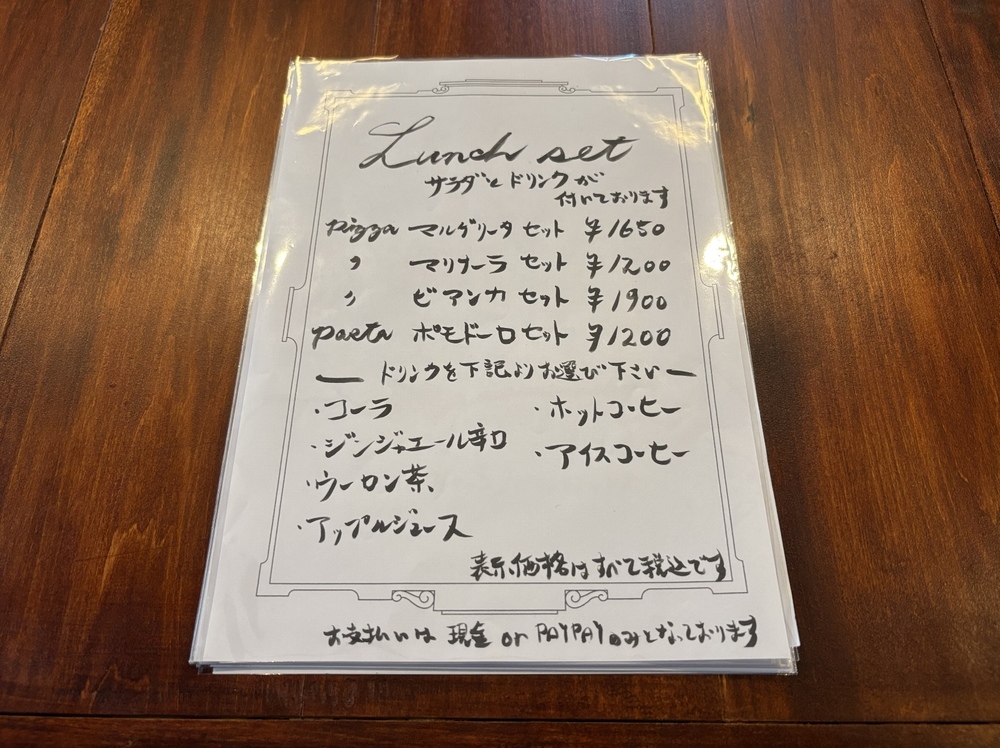 Lunch set
サラダとドリンクが
付いております
pizza マルゲリータ セット ¥1650
〃 マリナーラ セット ¥1200
〃 ビアンカ セット ¥1900
pasta ポモドーロセット ¥1200
ー ドリンクを下記よりお選び下さい ー
・コーラ ・ホットコーヒー
・ジンジャエール辛口 ・アイスコーヒー
・ウーロン茶
・アップルジュース
表示価格はすべて税込です
お支払いは 現金 or PAYPAYのみとなっております